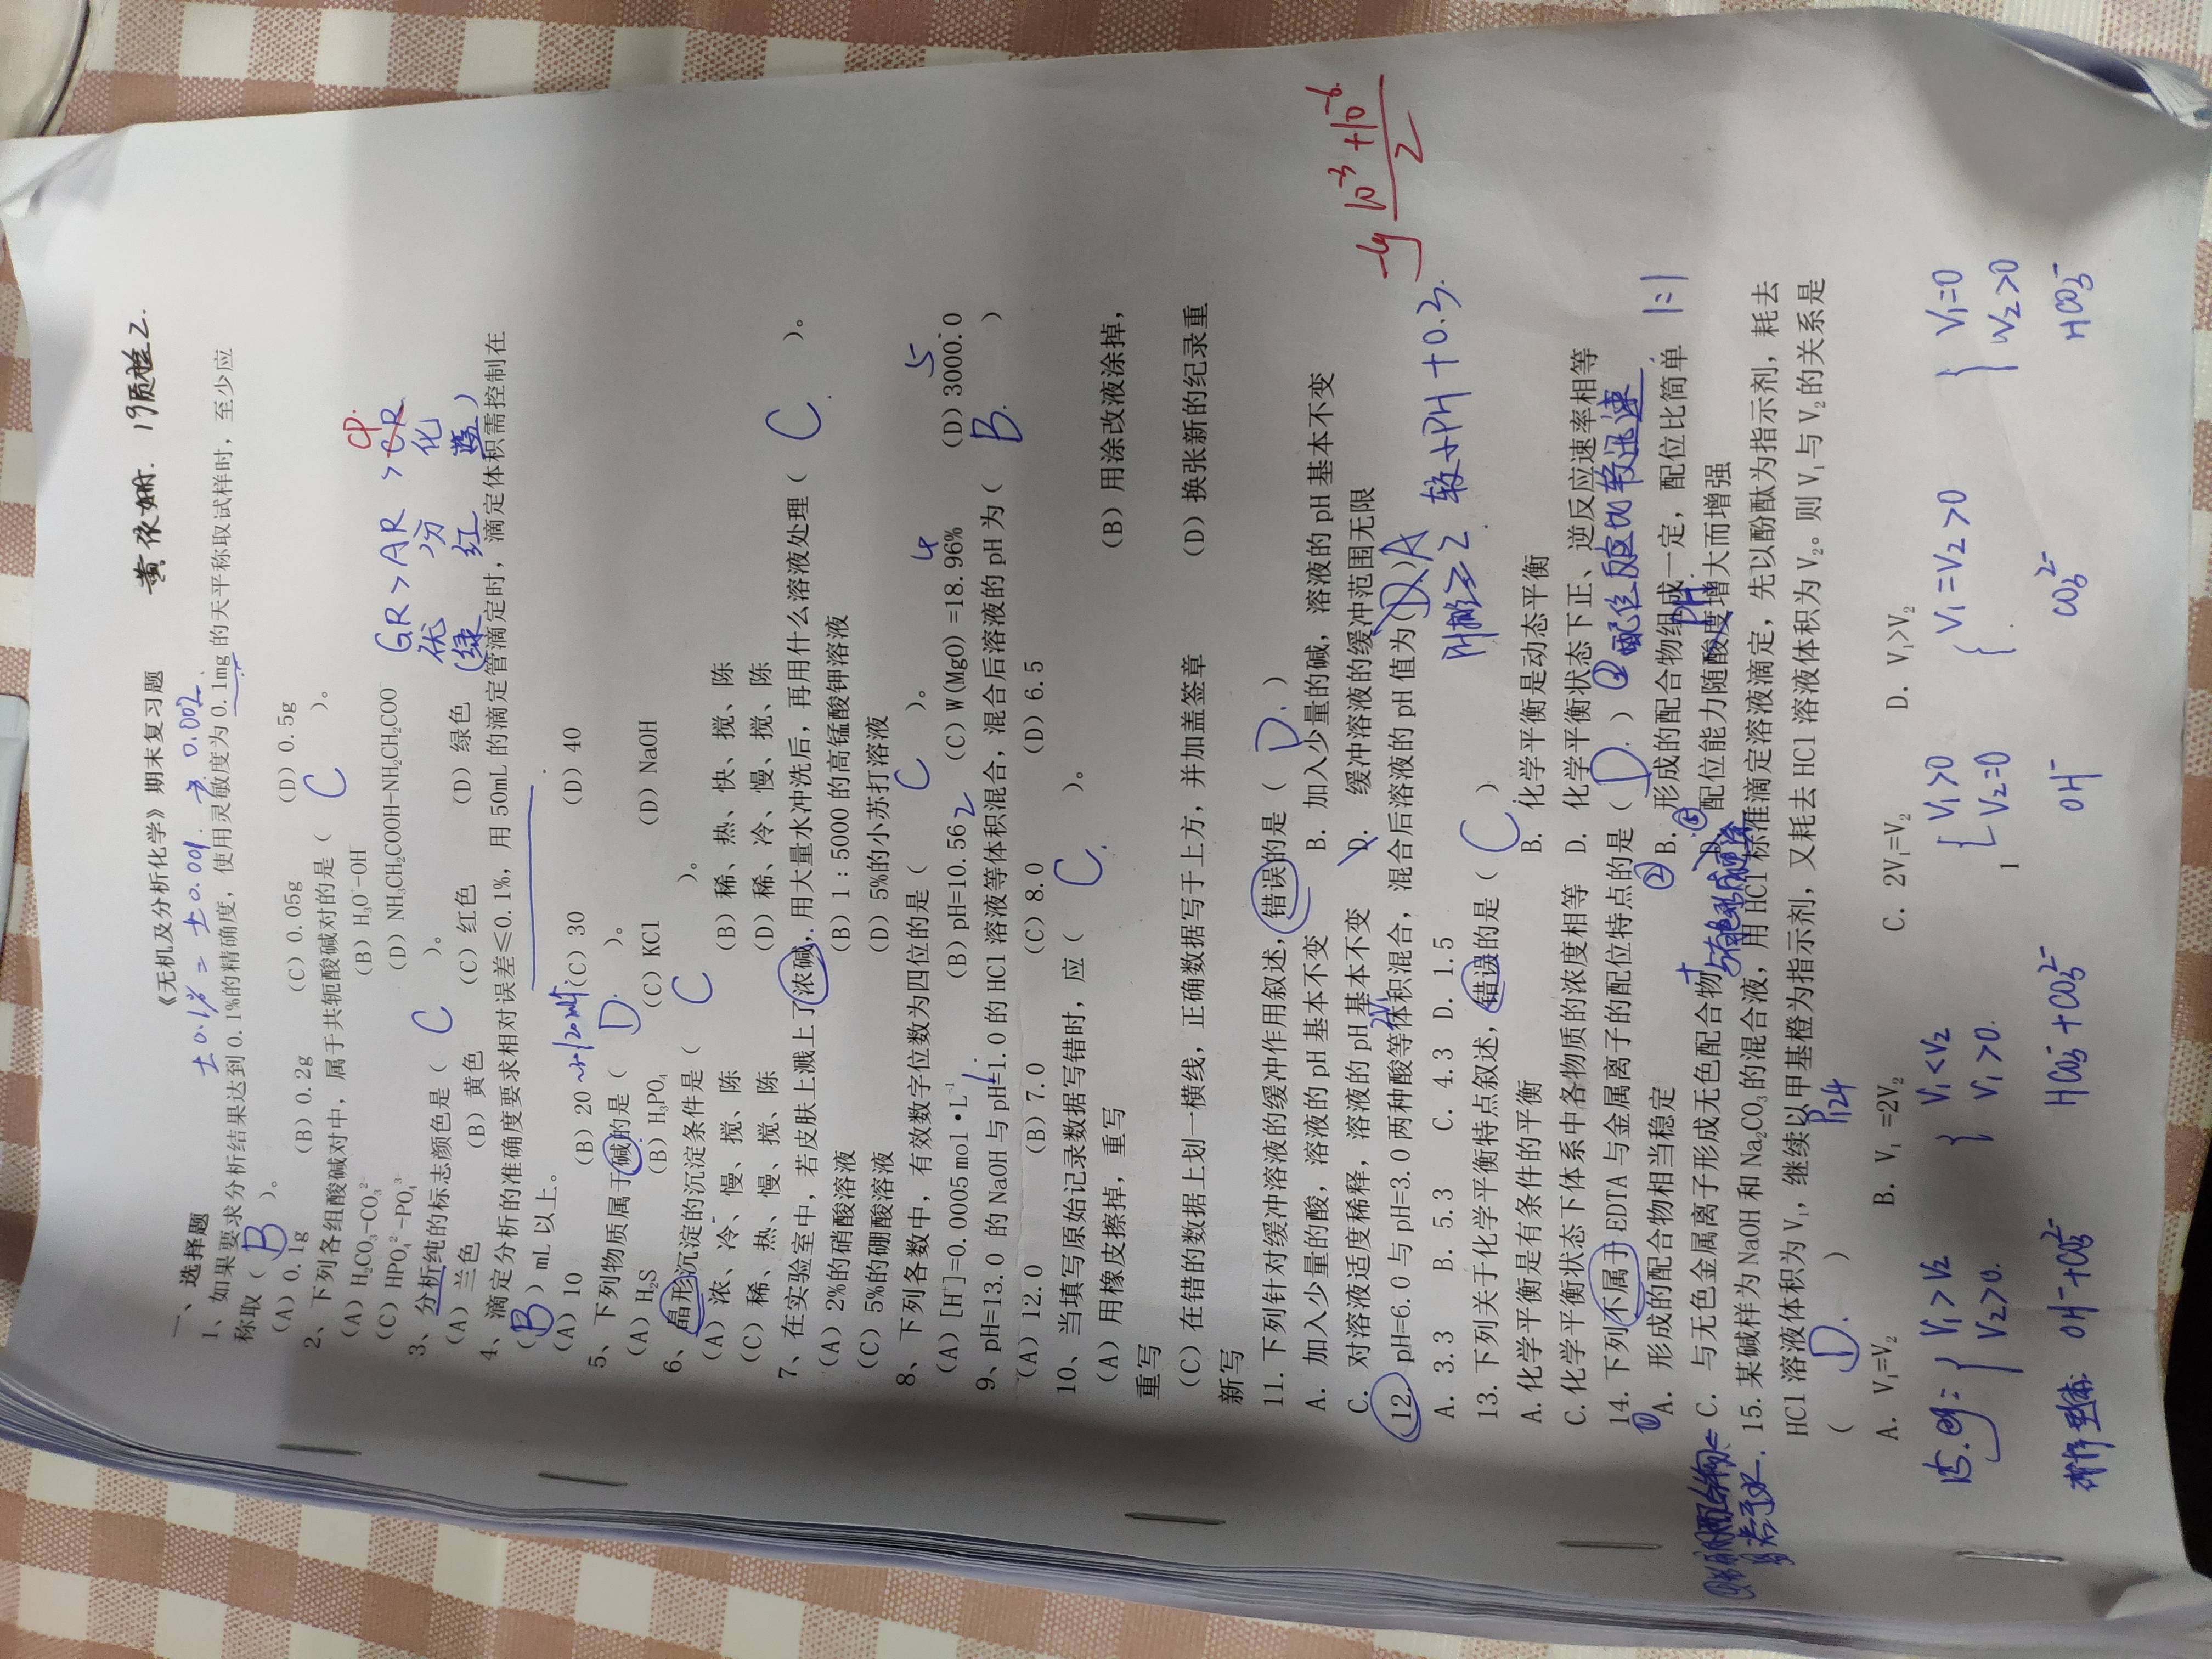 黄依姗. 19质检2.
《无机及分析化学》期末复习题
±0.1% = ±0.001 0.002
一、选择题
1、如果要求分析结果达到 0.1%的精确度，使用灵敏度为 0.1mg 的天平称取试样时，至少应
称取（ B ）。
（A）0.1g （B）0.2g （C）0.05g （D）0.5g
2、下列各组酸碱对中，属于共轭酸碱对的是（ C ）。
（A）H₂CO₃-CO₃²⁻ （B）H₃O⁺-OH⁻
（C）HPO₄²⁻-PO₄³⁻ （D）NH₃CH₂COOH-NH₂CH₂COO⁻
GR > AR > CP
优 分 化
(绿 红 蓝)
3、分析纯的标志颜色是（ C ）。
（A）兰色 （B）黄色 （C）红色 （D）绿色
4、滴定分析的准确度要求相对误差≤0.1%，用 50mL 的滴定管滴定时，滴定体积需控制在
（ B ）mL 以上。
（A）10 （B）20 （C）30 （D）40
5、下列物质属于碱的是（ D ）。
（A）H₂S （B）H₃PO₄ （C）KCl （D）NaOH
6、晶形沉淀的沉淀条件是（ C ）。
（A）浓、冷、慢、搅、陈 （B）稀、热、快、搅、陈
（C）稀、热、慢、搅、陈 （D）稀、冷、慢、搅、陈
7、在实验室中，若皮肤上溅上了浓碱，用大量水冲洗后，再用什么溶液处理（ C ）。
（A）2%的硝酸溶液 （B）1：5000 的高锰酸钾溶液
（C）5%的硼酸溶液 （D）5%的小苏打溶液
8、下列各数中，有效数字位数为四位的是（ C ）。
（A）[H⁺]=0.0005mol·L⁻¹ （B）pH=10.56 2 （C）W(MgO)=18.96% 4 （D）3000.0 5
9、pH=13.0 的 NaOH 与 pH=1.0 的 HCl 溶液等体积混合，混合后溶液的 pH 为（ B. ）
（A）12.0 （B）7.0 （C）8.0 （D）6.5
10、当填写原始记录数据写错时，应（ C. ）。
（A）用橡皮擦掉，重写 （B）用涂改液涂掉，
重写
（C）在错的数据上划一横线，正确数据写于上方，并加盖签章 （D）换张新的纪录重
新写
11. 下列针对缓冲溶液的缓冲作用叙述，错误的是（ D. ）
A. 加入少量的酸，溶液的 pH 基本不变 B. 加入少量的碱，溶液的 pH 基本不变
C. 对溶液适度稀释，溶液的 pH 基本不变 D. 缓冲溶液的缓冲范围无限
12. pH=6.0 与 pH=3.0 两种酸等体积混合，混合后溶液的 pH 值为（D）A
2V
-lg (10⁻³+10⁻⁶)/2
A. 3.3 B. 5.3 C. 4.3 D. 1.5
PH相≥2 较小PH+0.3.
13. 下列关于化学平衡特点叙述，错误的是（ C ）
A. 化学平衡是有条件的平衡 B. 化学平衡是动态平衡
C. 化学平衡状态下体系中各物质的浓度相等 D. 化学平衡状态下正、逆反应速率相等
14. 下列不属于 EDTA 与金属离子的配位特点的是（ D. ） ④配位反应比较迅速
① A. 形成的配合物相当稳定 ② B. 形成的配合物组成一定，配位比简单 1:1
C. 与无色金属离子形成无色配合物 D. 配位能力随酸度增大而增强
PH
15. 某碱样为 NaOH 和 Na₂CO₃ 的混合液，用 HCl 标准滴定溶液滴定，先以酚酞为指示剂，耗去
HCl 溶液体积为 V₁，继续以甲基橙为指示剂，又耗去 HCl 溶液体积为 V₂。则 V₁ 与 V₂ 的关系是
（ D. ） P124
A. V₁=V₂ B. V₁=2V₂ C. 2V₁=V₂ D. V₁>V₂
15.即: { V₁>V₂ V₂>0. { V₁<V₂ V₁>0. { V₁>0 V₂=0 { V₁=V₂>0 { V₁=0 V₂>0
OH⁻+CO₃²⁻ HCO₃⁻+CO₃²⁻ OH⁻ CO₃²⁻ HCO₃⁻
1